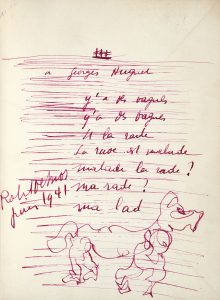 a Georges Hugnet
y'a des vagues
y'a des vagues
A la rade
La rade est malade
malade la rade ?
ma rade ?
ma lad
Robert Desnos
1941